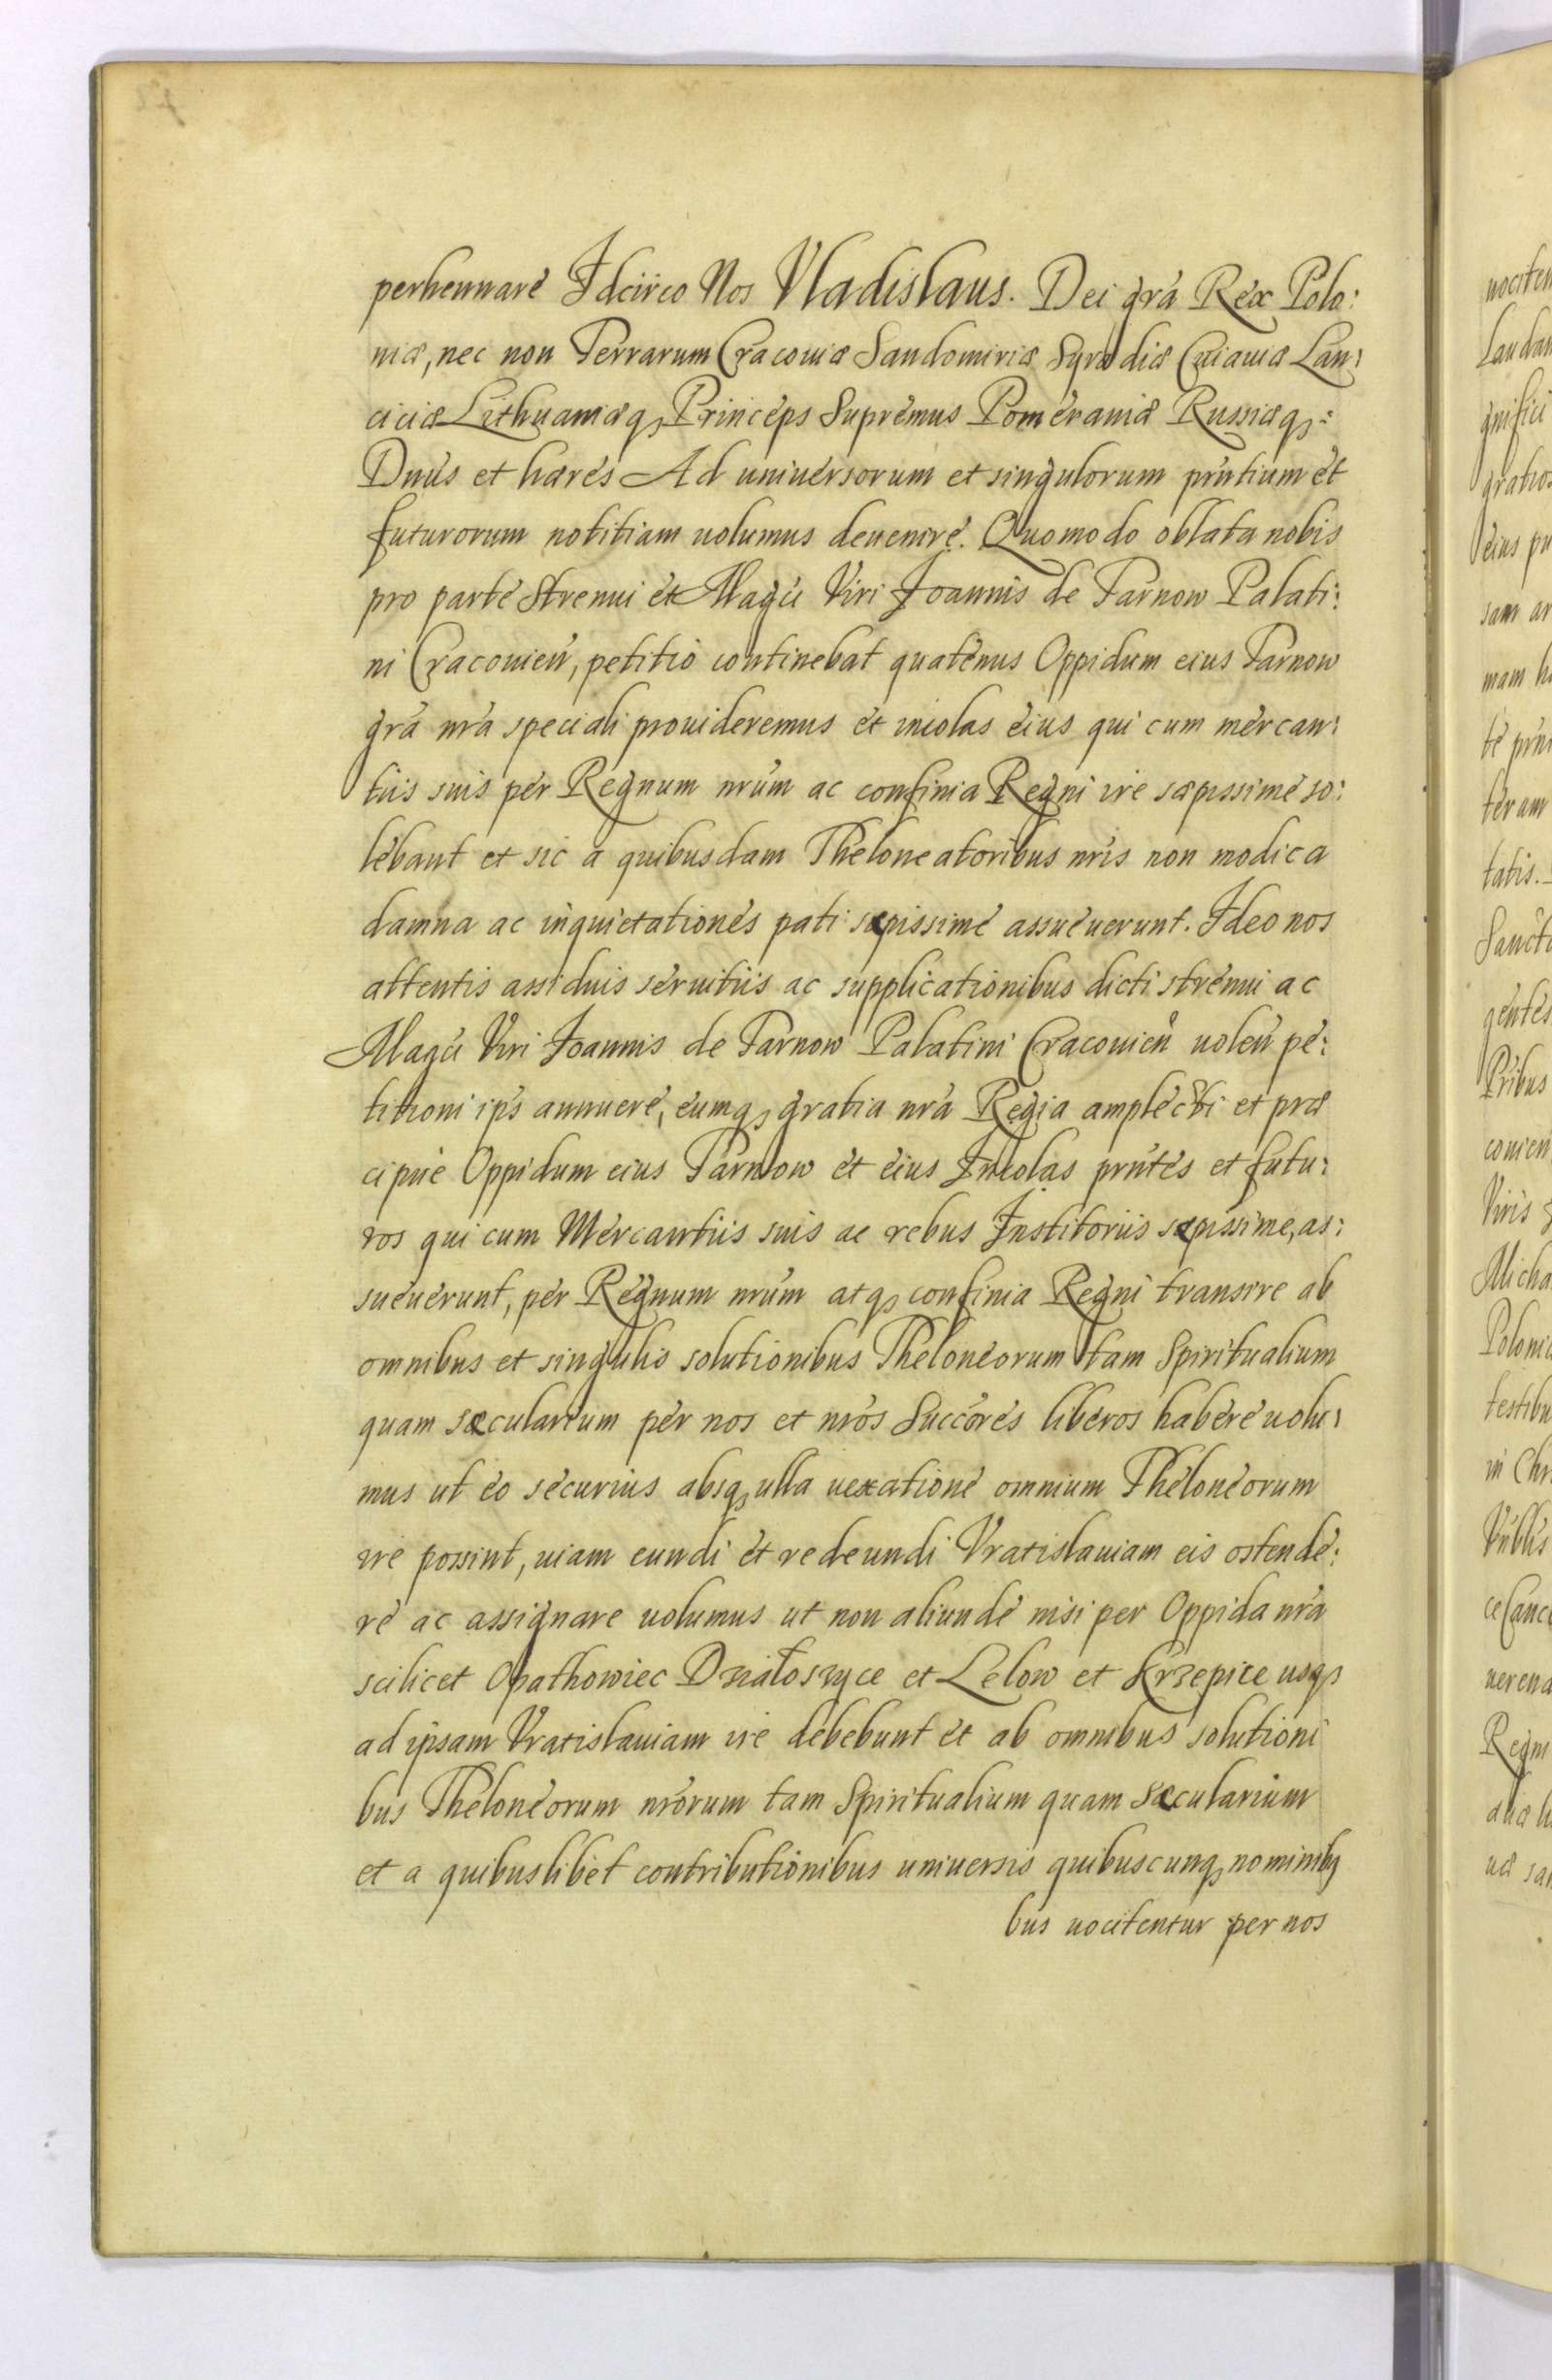 perhennare Idcirco Nos Vladislaus. Dei grã Rex Polo:
niæ, nec non Terrarum Cracouiæ Sandomiriæ Syradiæ Cuiauiæ Lan:
ciciæ Lithuaniæq₃ Princeps Supremus Pomeraniæ Russiæq₃:
Dnũs et hæres Ad uniuersorum et singulorum prñtium et
futurorum notitiam uolumus deuenire. Quomodo oblata nobis
pro parte Strenui et Magci Viri Joannis de Tarnow Palati:
ni Cracouieñ, petitio continebat quatenus Oppidum eius Tarnow
grã nrã speciali prouideremus et incolas eius qui cum mercan:
tiis suis per Regnum nrũm ac confinia Regni ire sæpissime so:
lebant et sic a quibusdam Theloneatoribus nrĩs non modica
damna ac inquietationes pati sæpissime assueuerunt. Ideo nos
attentis assiduis seruitiis ac supplicationibus dicti strenui ac
Magci Viri Joannis de Tarnow Palatini Cracouieñ uoleñ pe:
titioni ips annuere, eumq₃ gratia nrã Regia amplecti et præ
cipue Oppidum eius Tarnow et eius Incolas prñtes et futu:
ros qui cum Mercantiis suis ac rebus Institoriis sæpissime, as:
sueuerunt, per Regnum nrũm atq₃ confinia Regni transire ab
omnibus et singulis solutionibus Theloneorum tam Spiritualium
quam sæcularium per nos et nrõs Succõres liberos habere uolu:
mus ut eo securius absq₃ ulla uexatione omnium Theloneorum
ire possint, uiam eundi et redeundi Vratislauiam eis ostende:
re ac assignare uolumus ut non aliunde nisi per Oppida nrã
scilicet Opathowiec Działoszyce et Lelow et Krzepice usq₃
ad ipsam Vratislauiam ire debebunt et ab omnibus solutioni
bus Theloneorum nrõrum tam Spiritualium quam sæcularium
et a quibuslibet contributionibus uniuersis quibuscunq₃ nominibq
bus uocitentur per nos